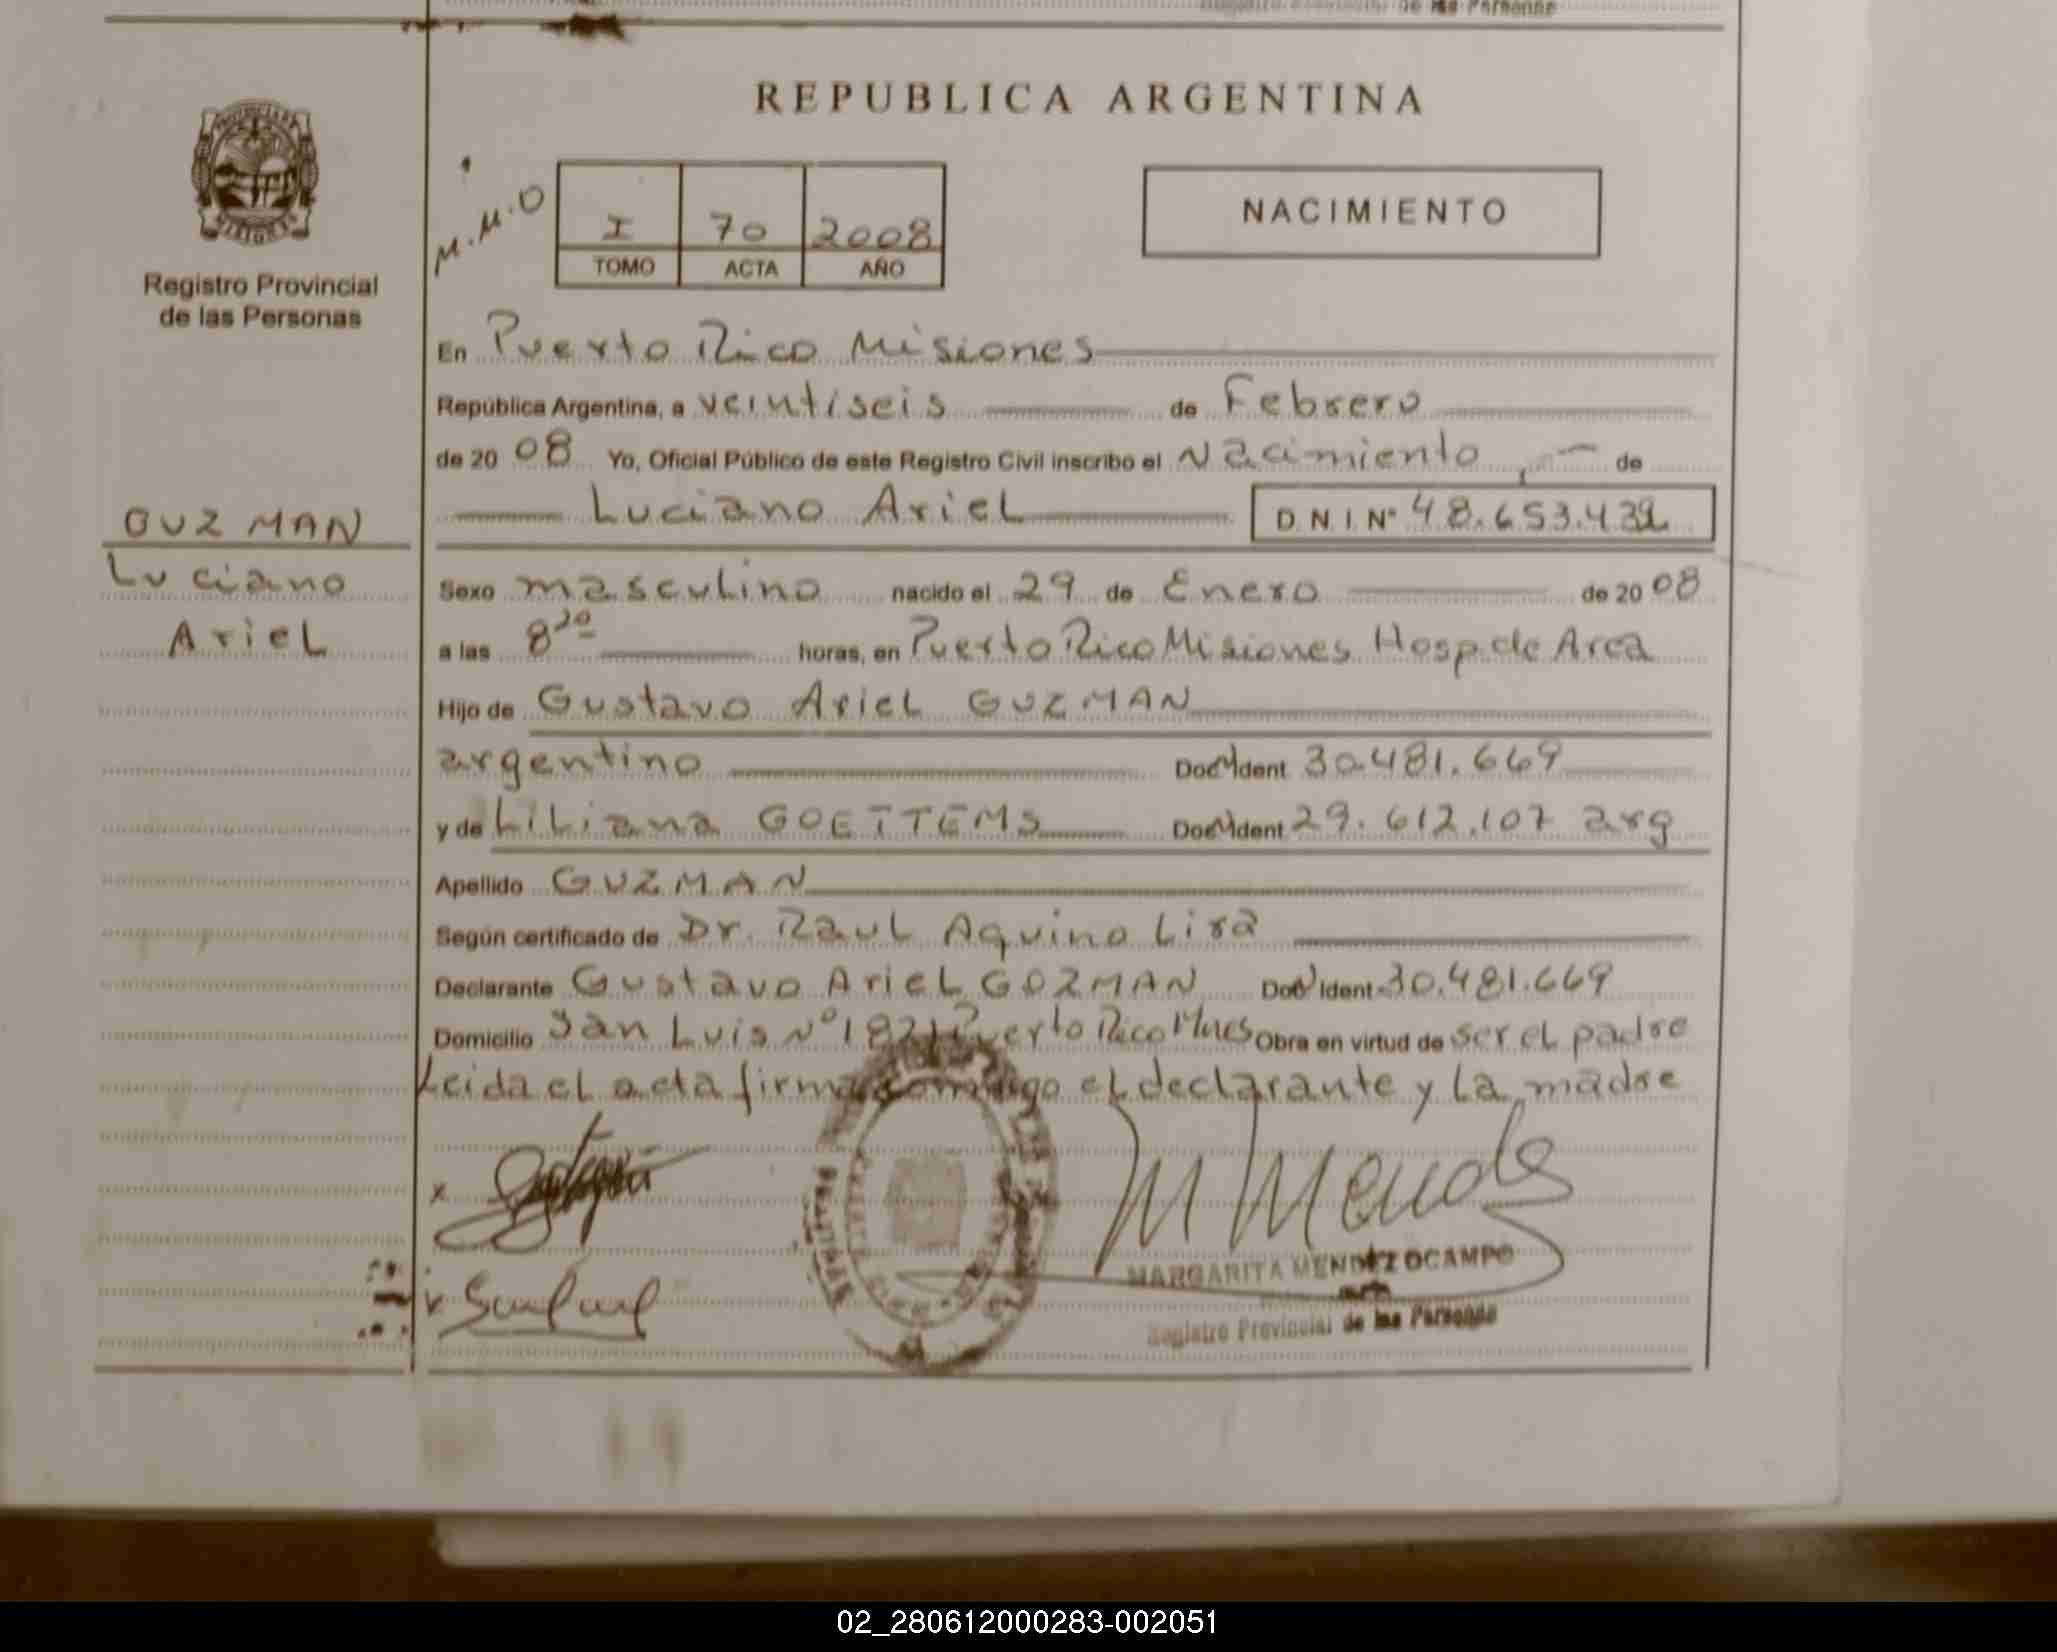 de las Personas
REPUBLICA ARGENTINA
PROVINCIA DE
MISIONES
Registro Provincial
de las Personas
M.M.O
I 70 2008
TOMO ACTA AÑO
NACIMIENTO
En Puerto Rico Misiones
República Argentina, a veintiseis de Febrero
de 20 08 Yo, Oficial Público de este Registro Civil inscribo el Nacimiento de
Luciano Ariel D.N.I. Nº 48.653.432
GUZMAN
Luciano
Ariel
Sexo masculino nacido el 29 de Enero de 20 08
a las 8 horas, en Puerto Rico Misiones Hosp. de Area
Hijo de Gustavo Ariel GUZMAN
argentino Doc Ident 30.481.669
y de Liliana GOETTEMS Doc Ident 29.612.107 arg
Apellido GUZMAN
Según certificado de Dr. Raul Aquino Lira
Declarante Gustavo Ariel GUZMAN Doc Ident 30.481.669
Domicilio San Luis Nº 1821 Puerto Rico Mnes Obra en virtud de ser el padre
Leida el acta firma conmigo el declarante y la madre
x
M Mendez
MARGARITA MENDEZ OCAMPO
Registro Provincial de las Personas
02_280612000283-002051